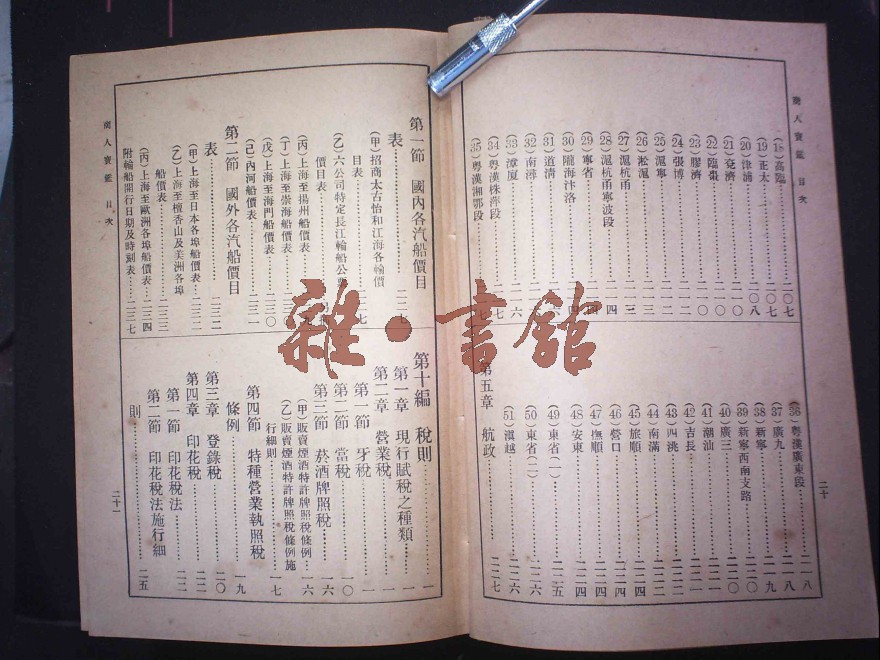 商人寶鑑 目次
(18)高臨……二〇七
(19)正太……二〇七
(20)津浦……二〇八
(21)兗濟……二一〇
(22)臨棗……二一〇
(23)膠濟……二一一
(24)張博……二一二
(25)滬寧……二一二
(26)淞滬……二一三
(27)滬杭甬……二一三
(28)滬杭甬寧波段……二一四
(29)寧省……二一四
(30)隴海汴洛
(31)道清
(32)南潯……二一六
(33)漳廈……二一六
(34)粵漢株萍段
(35)粵漢湘鄂段
(36)粵漢廣東段……二一八
(37)廣九……二一八
(38)新寧……二一九
(39)新寧西南支路……二二〇
(40)廣三……二二〇
(41)潮汕……二二一
(42)吉長……二二一
(43)四洮……二二二
(44)南滿……二二二
(45)旅順……二二四
(46)營口……二二四
(47)撫順……二二四
(48)安東……二二四
(49)東省(一)……二二五
(50)東省(二)……二二六
(51)滇越……二二六
第五章 航政……二二七
二十
商人寶鑑 目次
第一節 國內各汽船價目
表……二二七
(甲)招商太古怡和江海各輪價
目表
(乙)六公司特定長江輪船公票
價目表
(丙)上海至揚州船價表
(丁)上海至崇海船價表……二三〇
(戊)上海至海門船價表……二三〇
(己)內河船價表……二三一
第二節 國外各汽船價目
表……二三二
(甲)上海至日本各埠船價表……二三二
(乙)上海至檀香山及美洲各埠
船價表……二三三
(丙)上海至歐洲各埠船價表……二三四
附輪船開行日期及時刻表……二三七
第十編 稅則
第一章 現行賦稅之種類……一
第二章 營業稅……一
第一節 牙稅……一
第二節 當稅……一〇
第三節 菸酒牌照稅……一六
(甲)販賣煙酒特許牌照稅條例……一六
(乙)販賣煙酒特許牌照稅條例施
行細則……一七
第四節 特種營業執照稅
條例……一九
第三章 登錄稅……二〇
第四章 印花稅……二二
第一節 印花稅法……二二
第二節 印花稅法施行細
則……二五
二十一
雜·書館